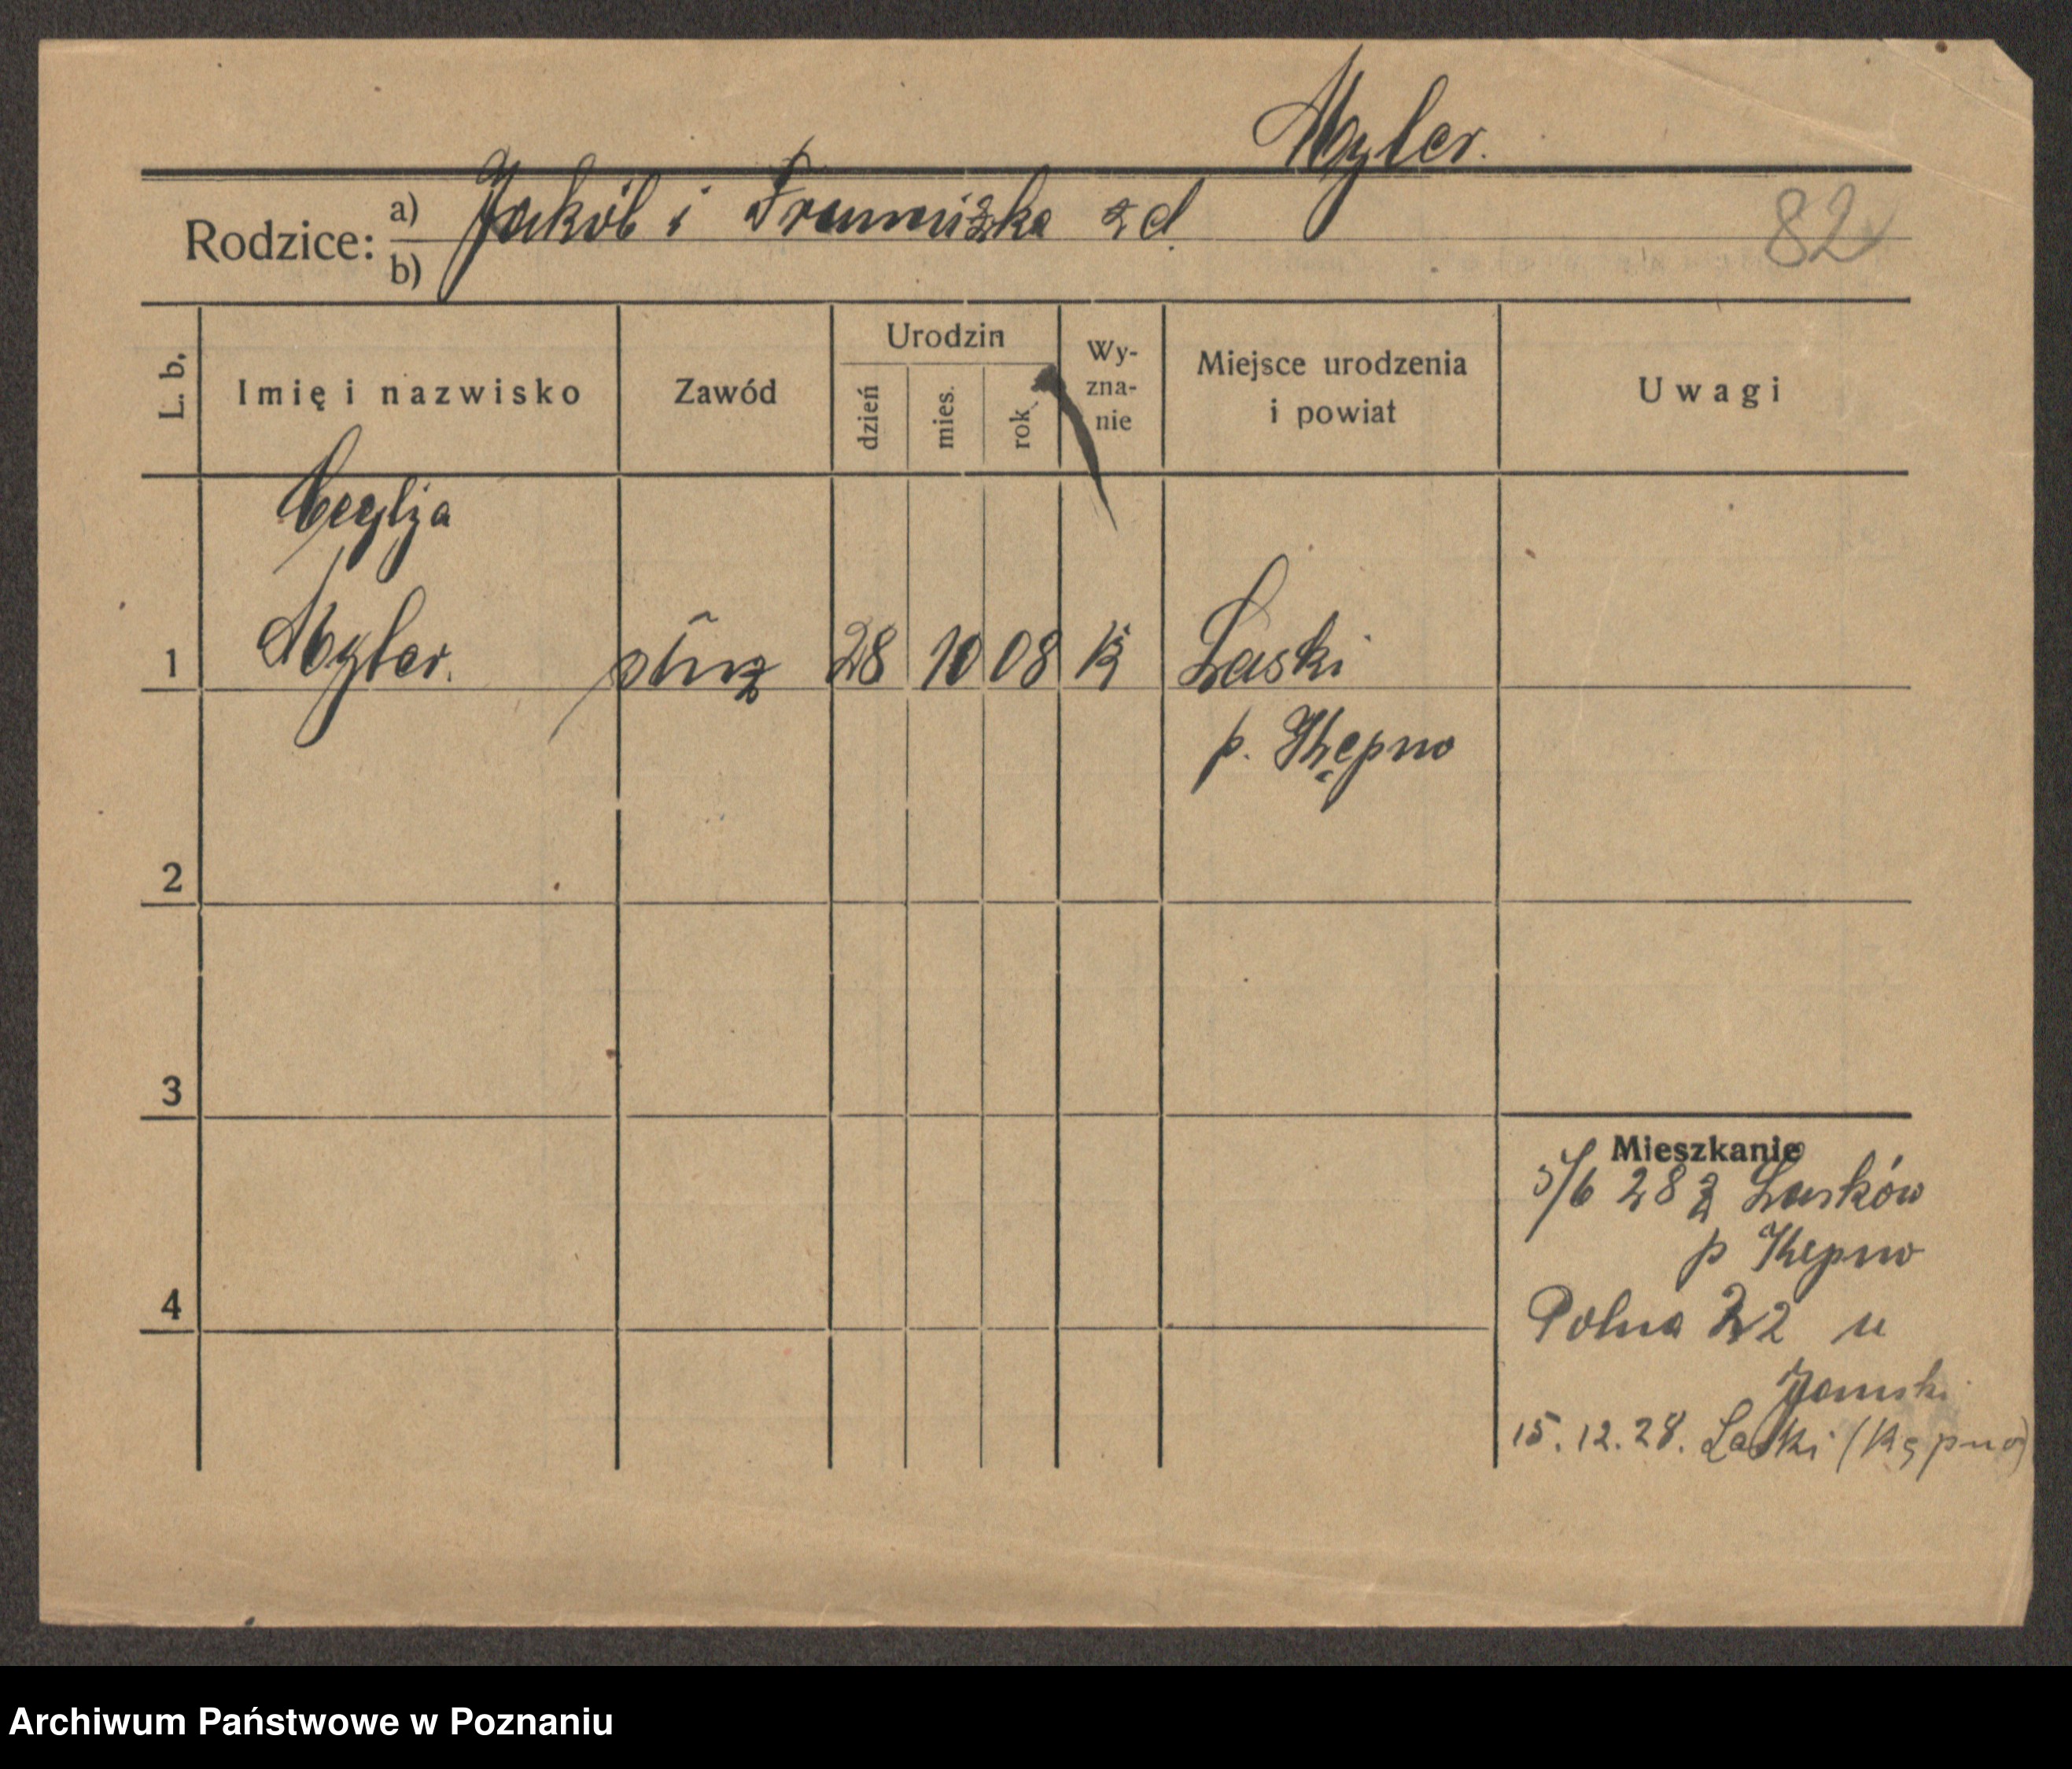 Myler.
Rodzice: a) Jakób i Franciszka z d
b)
82
L. b.
Imię i nazwisko
Zawód
Urodzin
dzień
mies.
rok
Wy-
zna-
nie
Miejsce urodzenia
i powiat
Uwagi
Cecylja
1 Myler. służ 28 10 08 K Laski
p. Kępno
2
3
Mieszkanie
5/6 28 z Lasków
p Kępno
4
Polna 22 u
15.12.28. Laski (Kępno)
Archiwum Państwowe w Poznaniu